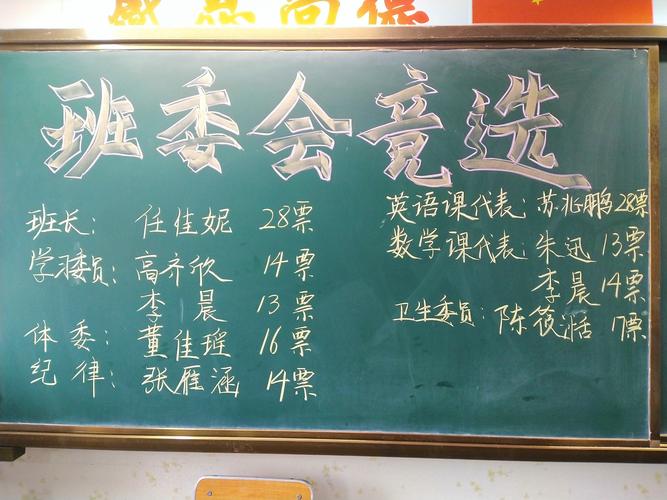 班委会竞选
班长: 任佳妮 28票
学习委员: 高齐欣 14票
李晨 13票
体委: 董佳瑶 16票
纪律: 张雁涵 14票
英语课代表: 苏兆鹏 28票
数学课代表: 朱迅 13票
李晨 14票
卫生委员: 陈筱活 17票